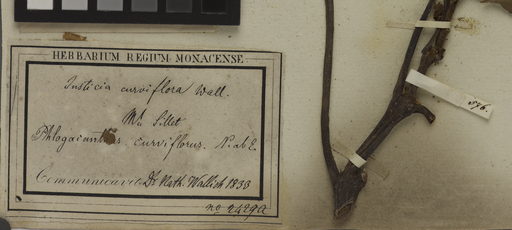 HERBARIUM REGIUM MONACENSE
Justicia curviflora Wall.
Mt Sillet
Phlogacanthus curviflorus. N. ab E.
Communicavit Dr Nath. Wallich 1833
no 2429a